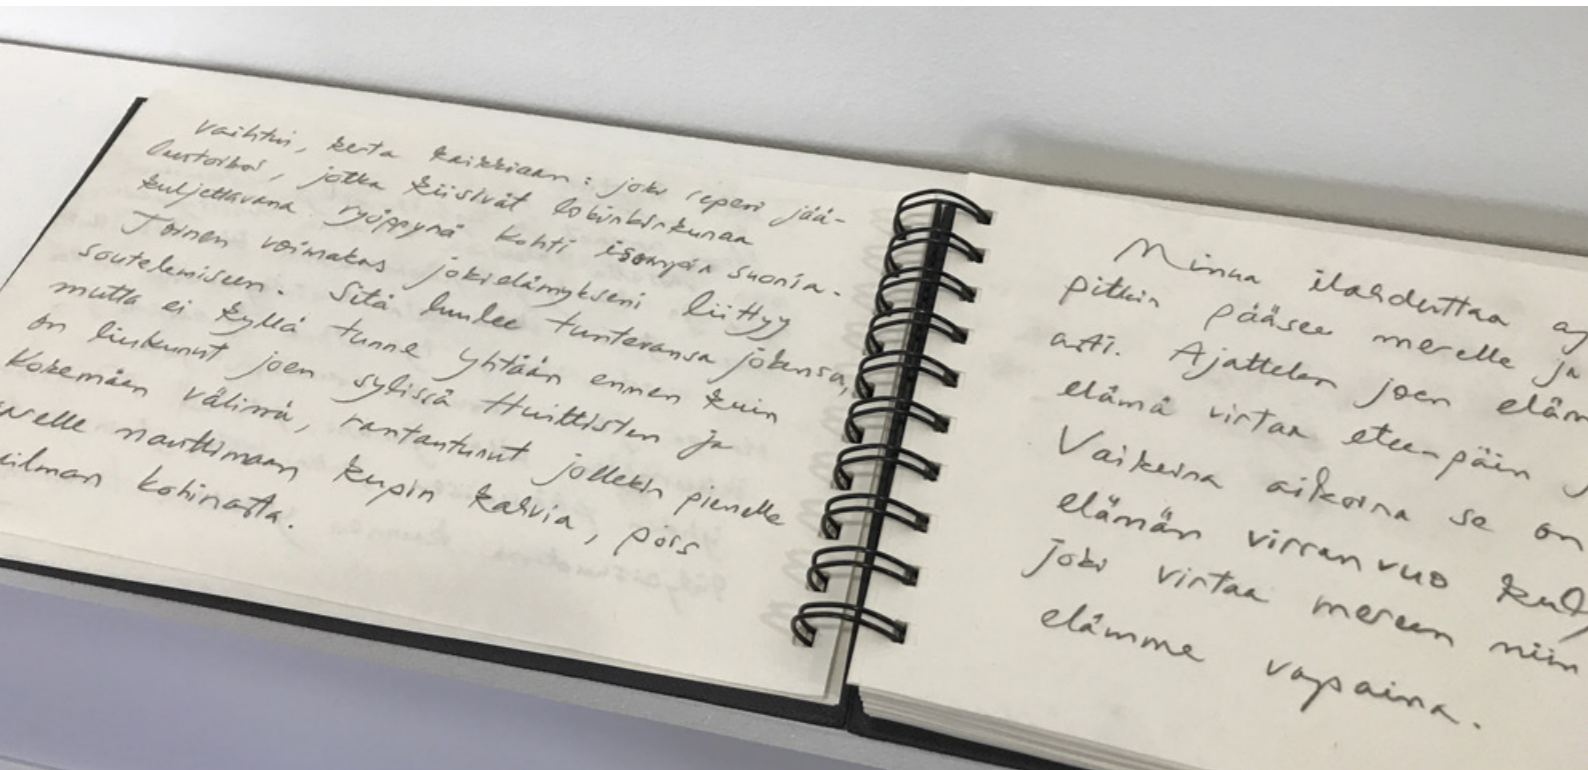 vaihtui, kerta kaikkiaan: joki repesi jää-
lauttoiksi, jotka kiisivät
kuljettavana ryöppynä kohti isompia suonia.
Toinen voimakas jokielämykseni liittyy
soutelemiseen. Sitä luulee tuntevansa jokensa,
mutta ei kyllä tunne yhtään ennen kuin
on liukunut joen sylissä Huittisten ja
Kokemäen välissä, rantautunut jollekin pienelle
nauttimaan kupin kahvia, pois
kohinasta.
Minua ilahduttaa
pitkin pääsee merelle ja
asti. Ajattelen joen
elämä virtaa eteenpäin
Vaikeina aikoina se on
elämän virran vuo
joki virtaa mereen niin
elämme vapaina.